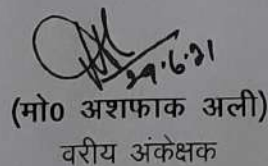 29.6.21
(मो0 अशफाक अली)
वरीय अंकेक्षक